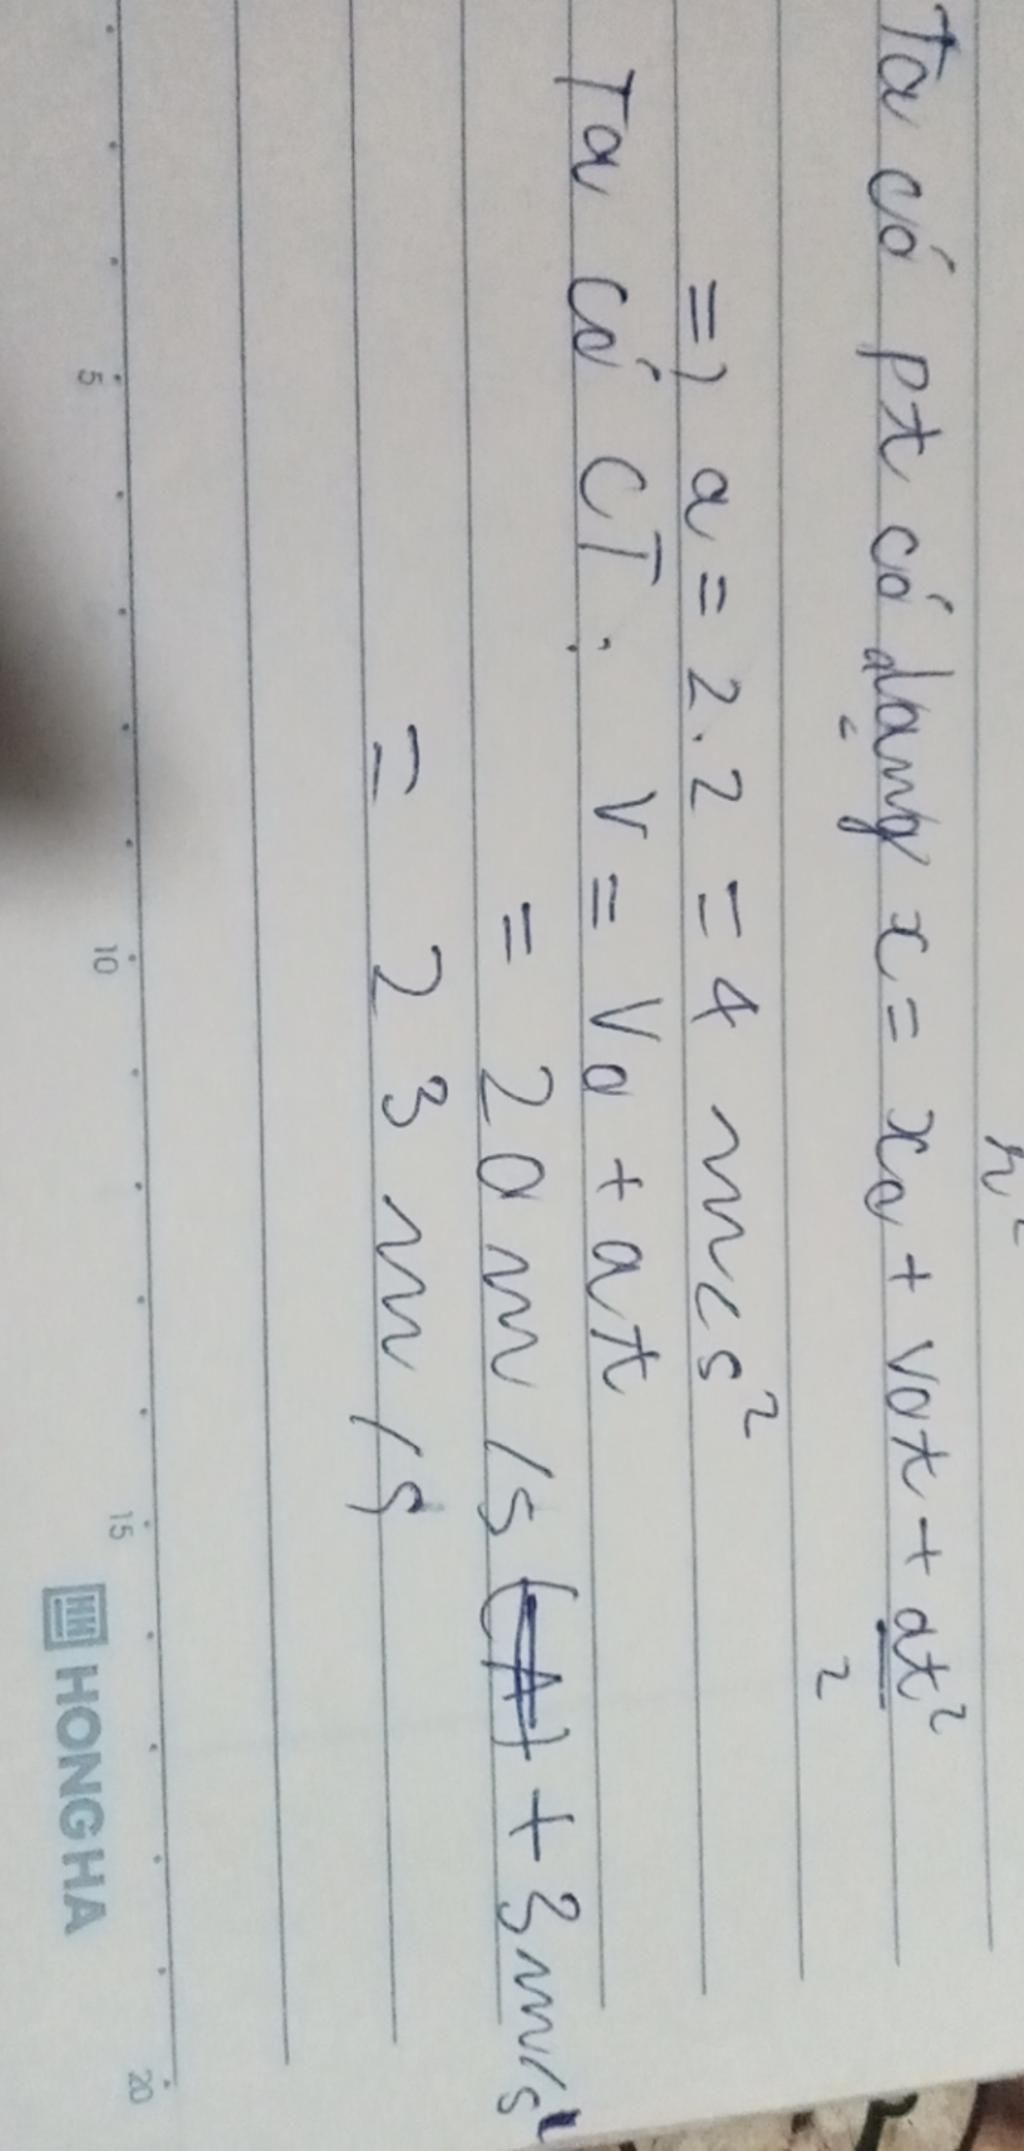 Ta có pt có dạng x = x0 + v0t + at²
2
=) a = 2.2 = 4 m/s²
Ta có CT: V = V0 + at
= 20 m/s + 3 m/s
= 23 m/s
5 10 15 20
HONG HA